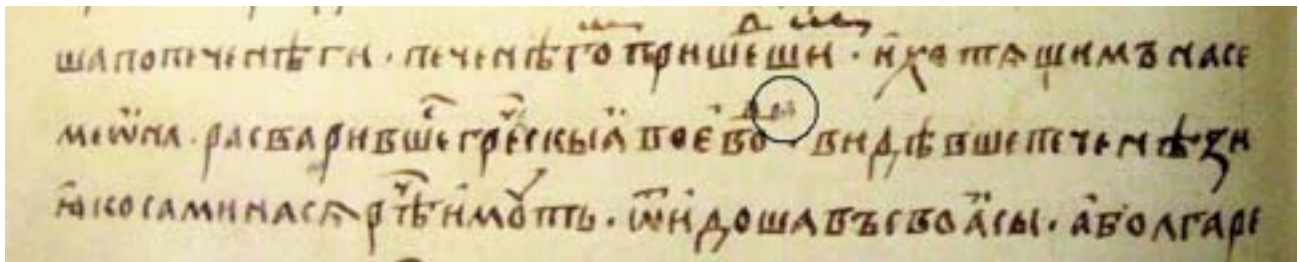 шапопеченѣги · печенѣгоⷨ пришеⷣшиⷨ · и҆хотѧщимъ насе
меѡ҆на · расваривⷲше греⷱскыѧ҆ вое҆воⷣ · видѣвше печенѣзи
ꙗ҆ко сами насѧ рⷮѣ и҆моуⷮть · ѿидоша въ своѧ҆сы · а҆болгаре